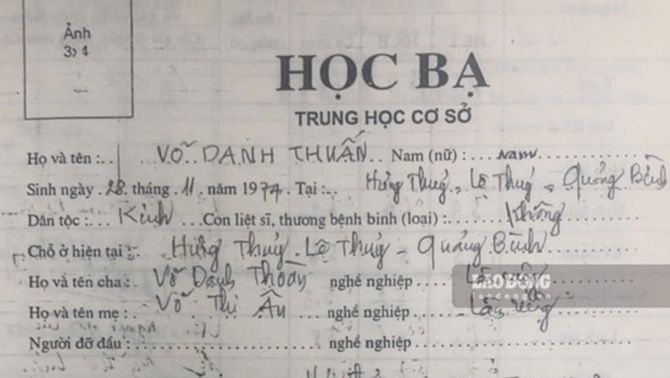 Ảnh
3x4
HỌC BẠ
TRUNG HỌC CƠ SỞ
Họ và tên : VÕ DANH THUẤN Nam (nữ) : Nam
Sinh ngày 28. tháng . 11. năm 1974. Tại : Hưng Thuỷ - Lệ Thuỷ - Quảng Bình
Dân tộc : Kinh Con liệt sĩ, thương bệnh binh (loại) : Không
Chỗ ở hiện tại : Hưng Thuỷ - Lệ Thuỷ - Quảng Bình
Họ và tên cha : Võ Danh nghề nghiệp
LAO ĐỘNG
Họ và tên mẹ : Võ Thị nghề nghiệp Làm ruộng
Người đỡ đầu : nghề nghiệp